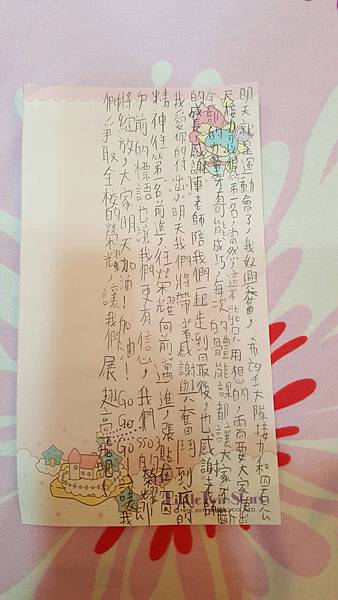 明天就是運動會了，我好興奮，希望大隊接力和四百公
尺接力可以得第一名，當然，這不能只用想的，需要大家使出
全部的力量才有可能成功，每次的體能課都讓大家不斷
的成長，感謝陳老師陪我們一起走到最後，也感謝老師
我愛你的付出，明天我們將帶著感謝與奮鬥到底的
精神往第一名前進，往榮耀向前邁進，張貼在
包前的標語也讓我們更有信心，我們550的榮耀
將綻放，大家明天加油！加油！GO GO GO 讓我
們爭取全校的榮耀，讓我們展翅高飛吧！
Little Twin Stars